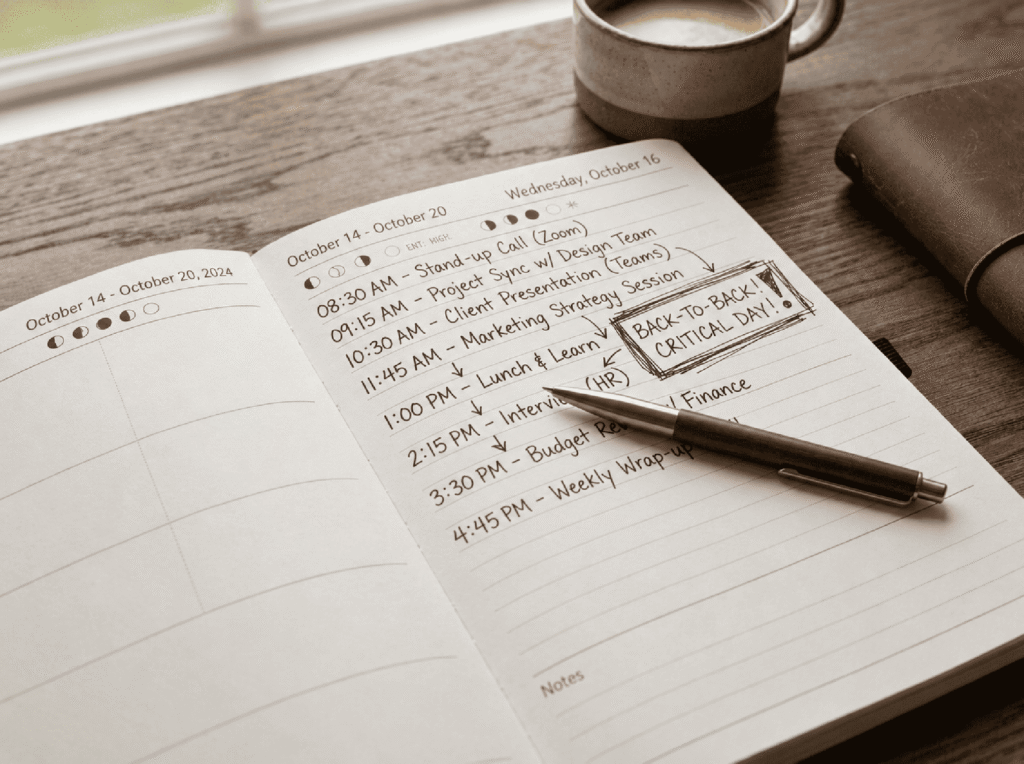 October 14 - October 20, 2024
October 14 - October 20
Wednesday, October 16
08:30 AM – Stand-up Call (Zoom)
09:15 AM – Project Sync w/ Design Team
10:30 AM – Client Presentation (Teams)
11:45 AM – Marketing Strategy Session
1:00 PM – Lunch & Learn
2:15 PM – (HR)
3:30 PM – Budget Finance
4:45 PM – Weekly Wrap-up
BACK-TO-BACK!
CRITICAL DAY!!
Notes